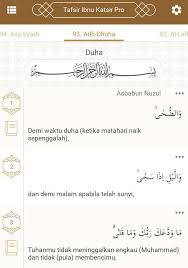 Tafsir Ibnu Katsir Pro
94. Asy-Syarh
93. Adh-Dhuha
92. Al-Lail
Duha
بِسْمِ اللَّهِ الرَّحْمَٰنِ الرَّحِيمِ
Asbabun Nuzul
1
وَالضُّحٰىۙ
Demi waktu duha (ketika matahari naik
sepenggalah),
2
وَالَّيْلِ اِذَا سَجٰىۙ
dan demi malam apabila telah sunyi,
3
مَا وَدَّعَكَ رَبُّكَ وَمَا قَلٰىۗ
Tuhanmu tidak meninggalkan engkau (Muhammad)
dan tidak (pula) membencimu,